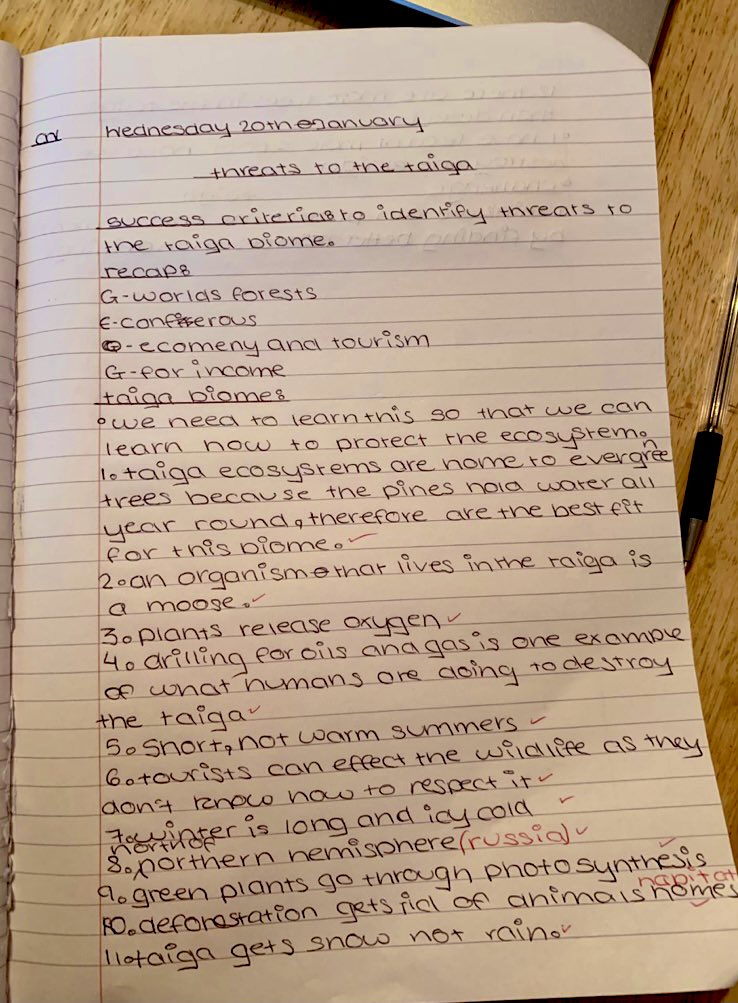 cw Wednesday 20th January
threats to the taiga
success criteria: to identify threats to
the taiga biome.
recap:
G-worlds forests
E-coniferous
O-ecomeny and tourism
G-for income
taiga biome:
•we need to learn this so that we can
learn how to protect the ecosystem.
1. taiga ecosystems are home to evergreen
trees because the pines hold water all
year round, therefore are the best fit
for this biome.
2. an organism that lives in the taiga is
a moose.
3. plants release oxygen
4. drilling for oils and gas is one example
of what humans are doing to destroy
the taiga
5. Short, hot warm summers
6. tourists can effect the wildlife as they
don't know how to respect it
7. winter is long and icy cold
north of
8. northern hemisphere (russia)
9. green plants go through photosynthesis
habitat
10. deforestation gets rid of animals homes
11. taiga gets snow not rain.